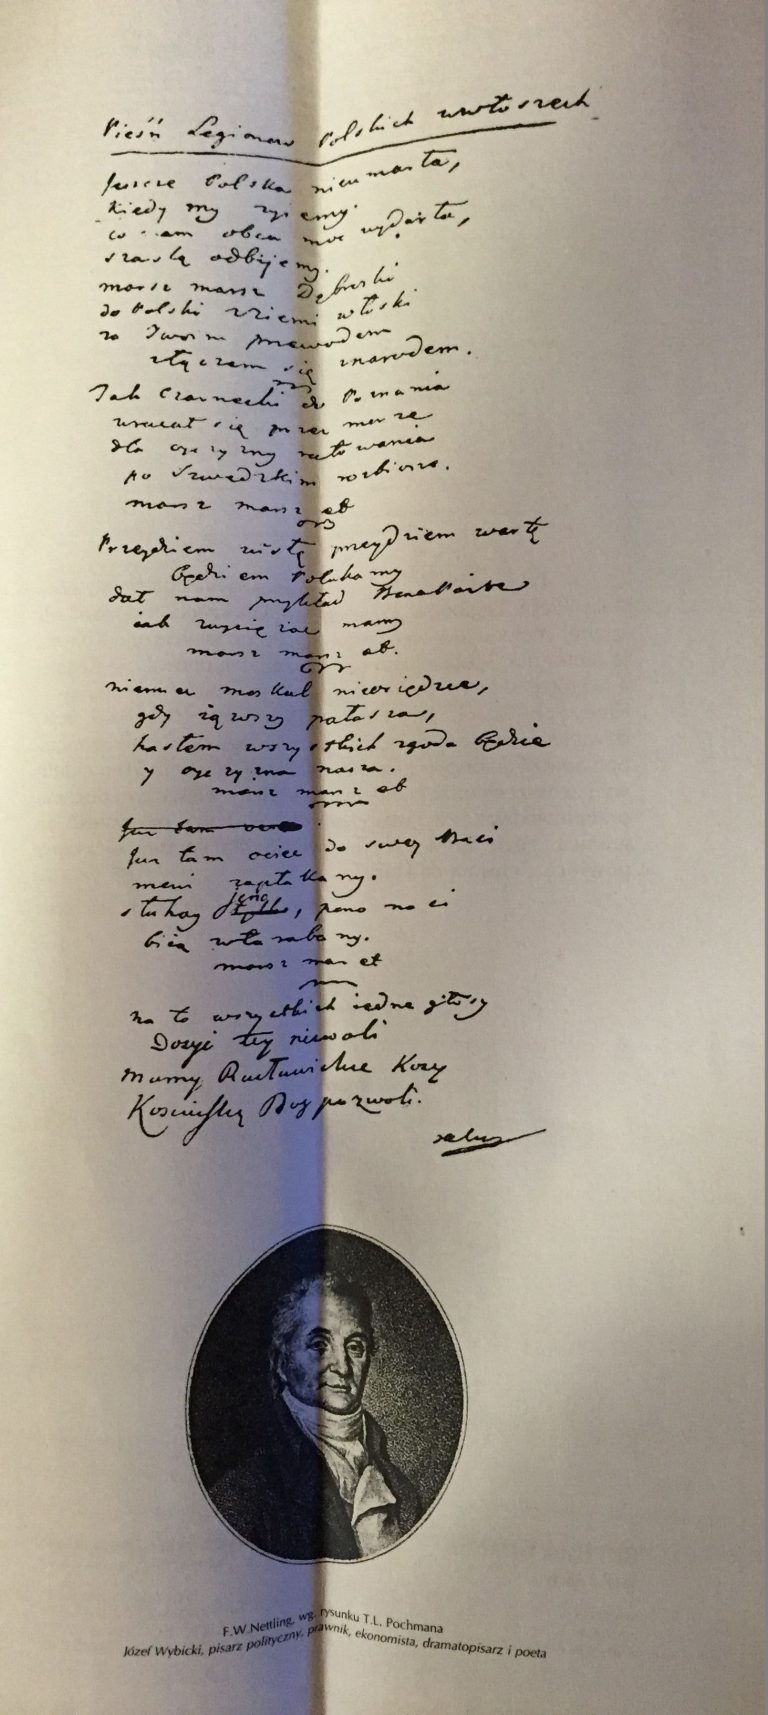 Pieśń Legionow Polskich wewłoszech
Jeszcze Polska nieumarła,
kiedy my zyiemy.
co nam obca moc wydarła,
szablą odbijemy.
marsz marsz Dąbroski
do Polski zziemi włoski
za Twoim przewodem
złączem się znarodem.
Jak Czarnecki do Poznania
wracał się przez morze
dla oyczyzny ratowania
po Szwedzkim rozbiorze.
marsz marsz etc
Przeydziem wisłę przeydziem wartę
będziem Polakamy
dał nam przykład Bonaparte
iak zwyciężac mamy
marsz marsz etc.
niemiec moskal nieosiędzie,
gdy iąwszy pałasza,
hasłem wszystkich zgoda będzie
y oyczyzna nasza.
marsz marsz etc
Jusz tam ociec
Jusz tam ociec do swey Basi
mówi zapłakany.
słuchay jeno tylko, pono nasi
biią wtarabany.
marsz mar etc
na to wszystkich iedne głosy
Dosyć tey niewoli
mamy Racławickie Kosy
Kosciuszkę Bog pozwoli.
F.W.Nettling, wg. rysunku T.L. Pochmana
Józef Wybicki, pisarz polityczny, prawnik, ekonomista, dramatopisarz i poeta